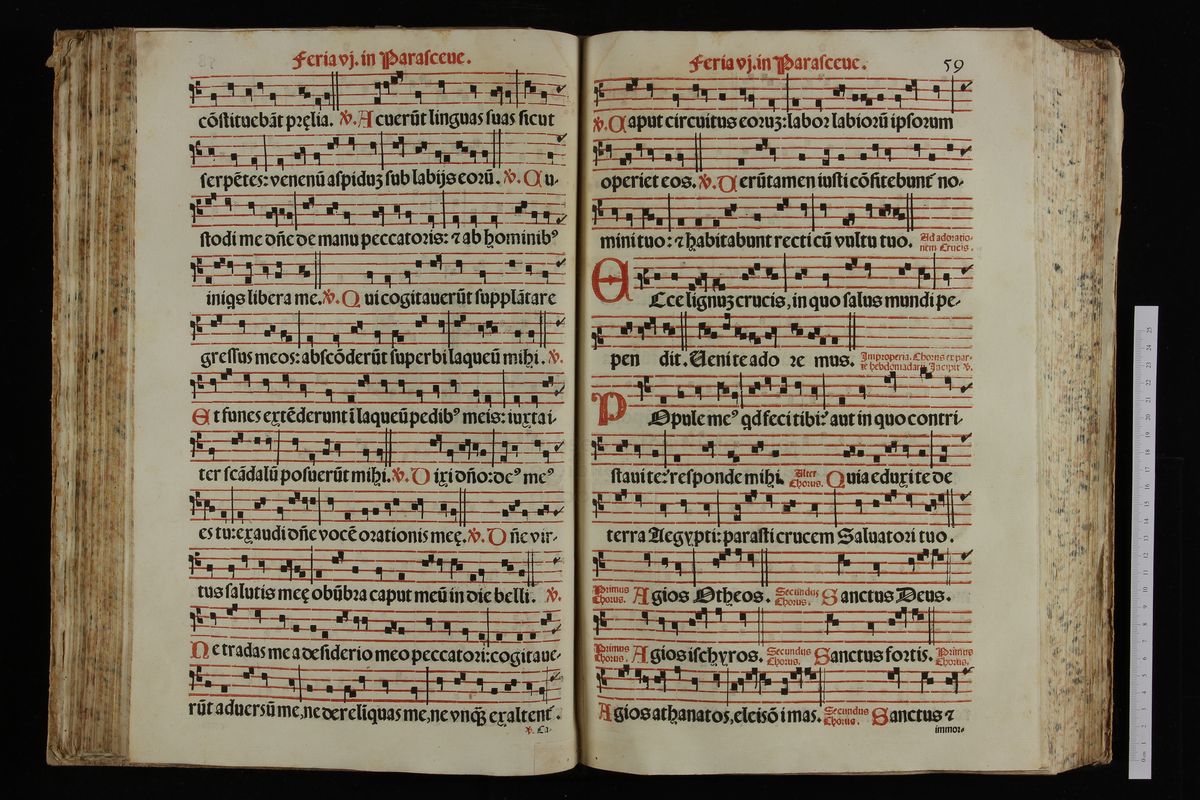 Feria vj. in Parasceue.
cōstituebāt pręlia. ℣. Acuerūt linguas suas sicut
serpētes: venenū aspiduʒ sub labijs eorū. ℣. Cu-
stodi me dn̄e de manu peccatoris: ⁊ ab hominibꝰ
iniqs libera me. ℣. Qui cogitauerūt supplātare
gressus meos: abscōderūt superbi laqueū mihi. ℣.
Et funes extēderunt ī laqueū pedibꝰ meis: iuxta i-
ter scādalū posuerūt mihi. ℣. Dixi dn̄o: deꝰ meꝰ
es tu: exaudi dn̄e vocē orationis meę. ℣. Dn̄e vir-
tus salutis meę obūbra caput meū in die belli. ℣.
Ne tradas me a desiderio meo peccatori: cogitaue-
rūt aduersū me, ne derelīquas me, ne vnqȝ exaltent.
℣. Ca-
Feria vj. in Parasceue.
59
℣. Caput circuitus eoruʒ: labor labiorū ipsorum
operiet eos. ℣. Uerūtamen iusti cōfitebunt no-
mini tuo: ⁊ habitabunt recti cū vultu tuo. Ad adoratio-
nem Crucis.
Ecce lignuʒ crucis, in quo salus mundi pe-
pen dit. Uenite ado re mus. Improperia. Chorus ex par-
te hebdomadarij Incipit ℣.
Popule meꝰ qd feci tibi? aut in quo contri-
staui te? responde mihi. Alter Chorus. Quia eduxi te de
terra Aegypti: parasti crucem Saluatori tuo.
Primus Chorus. Agios Otheos. Secundus Chorus. Sanctus Deus.
Primus Chorus. Agios ischyros. Secundus Chorus. Sanctus fortis. Primus Chorus.
Agios athanatos, eleisō imas. Secundus Chorus. Sanctus ⁊
immor-